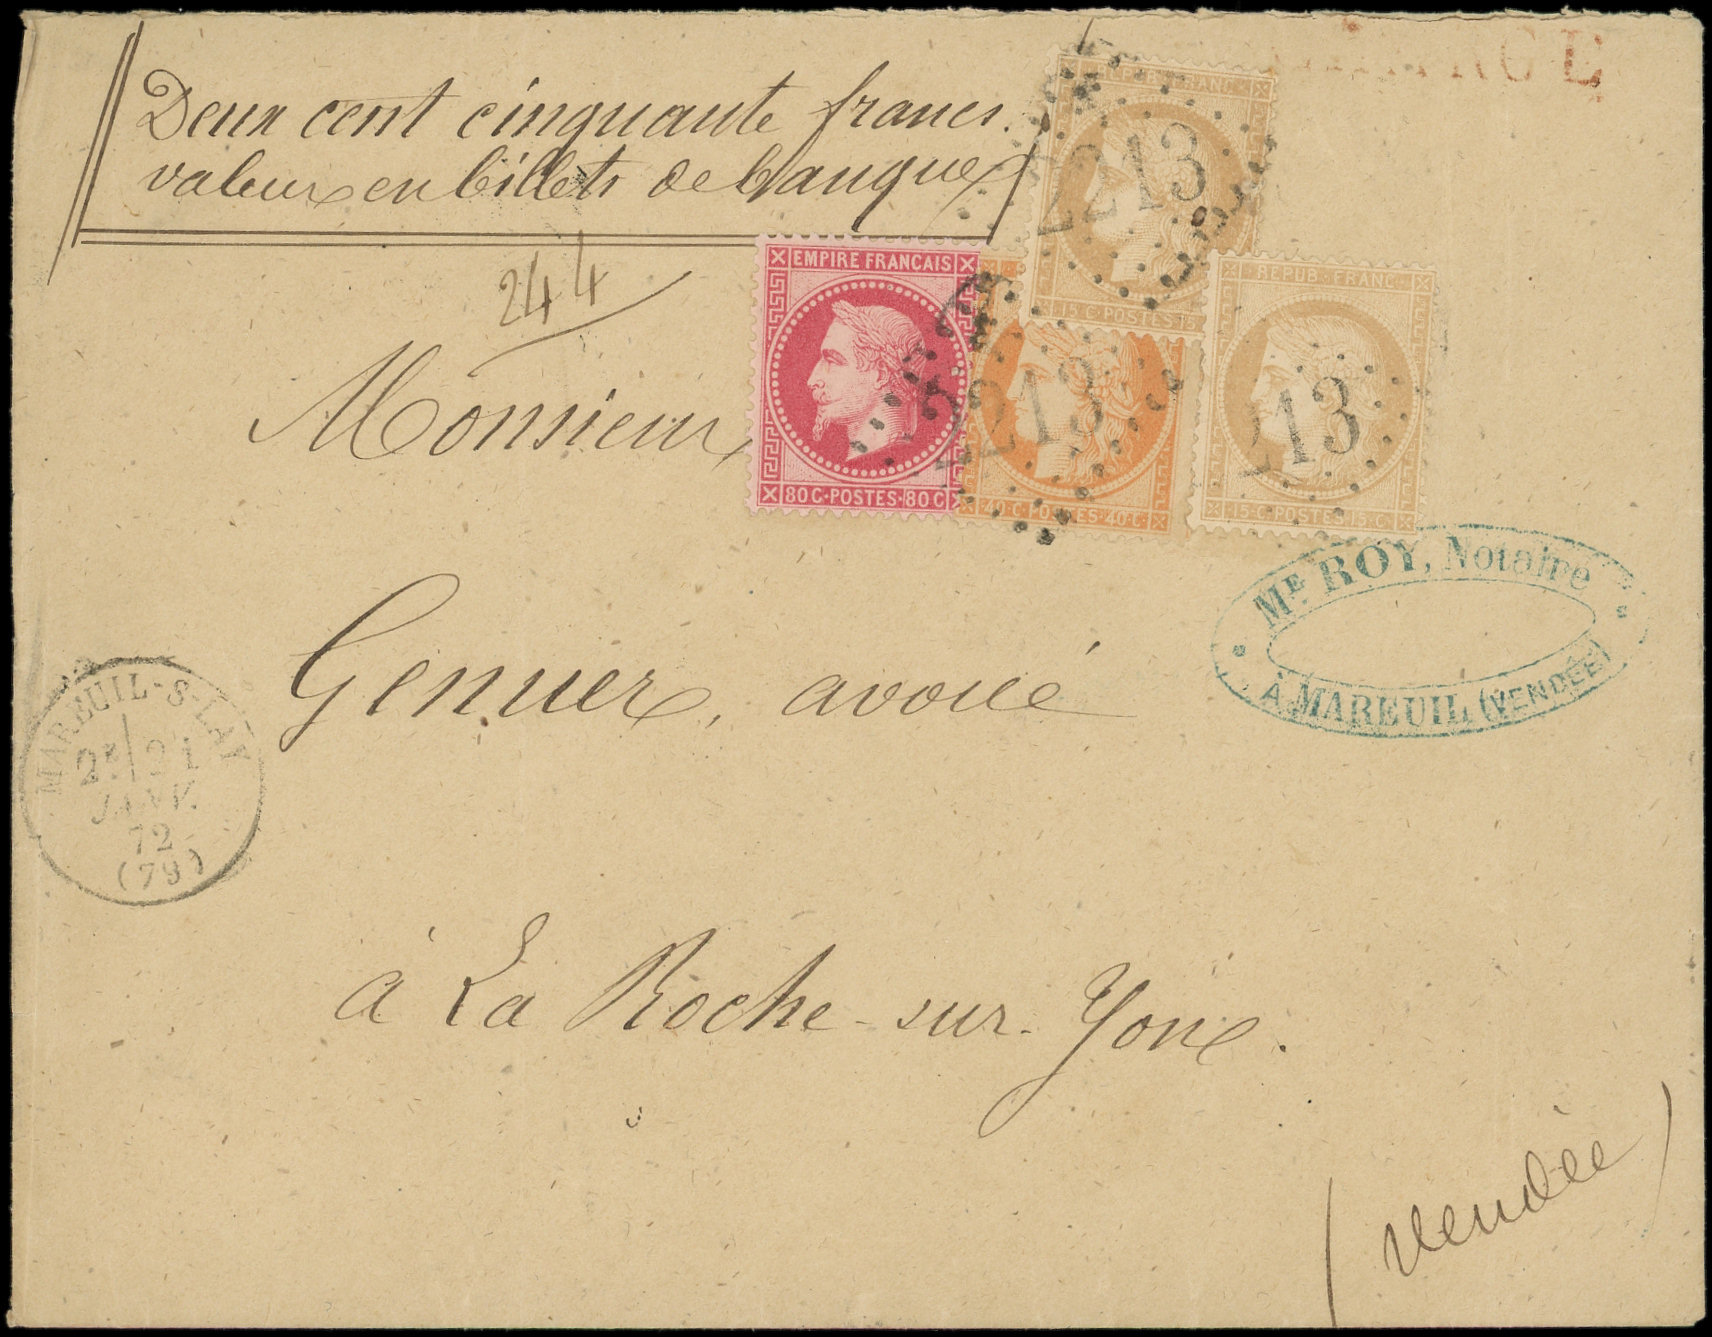 Deux cent cinquante francs.
valeur en billets de banque
244
REPUB FRANC
2213
15 C·POSTES 15
EMPIRE FRANCAIS
80 C·POSTES·80 C
2213
40 C·POSTES·40 C
REPUB·FRANC
213
15 C·POSTES·15 C
Monsieur
ME ROY, Notaire
À MAREUIL (VENDÉE)
Genuer, avoué
MAREUIL-S-LAY
2E 21
JANV.
72
(79)
à La Roche-sur-Yon.
(Vendée)